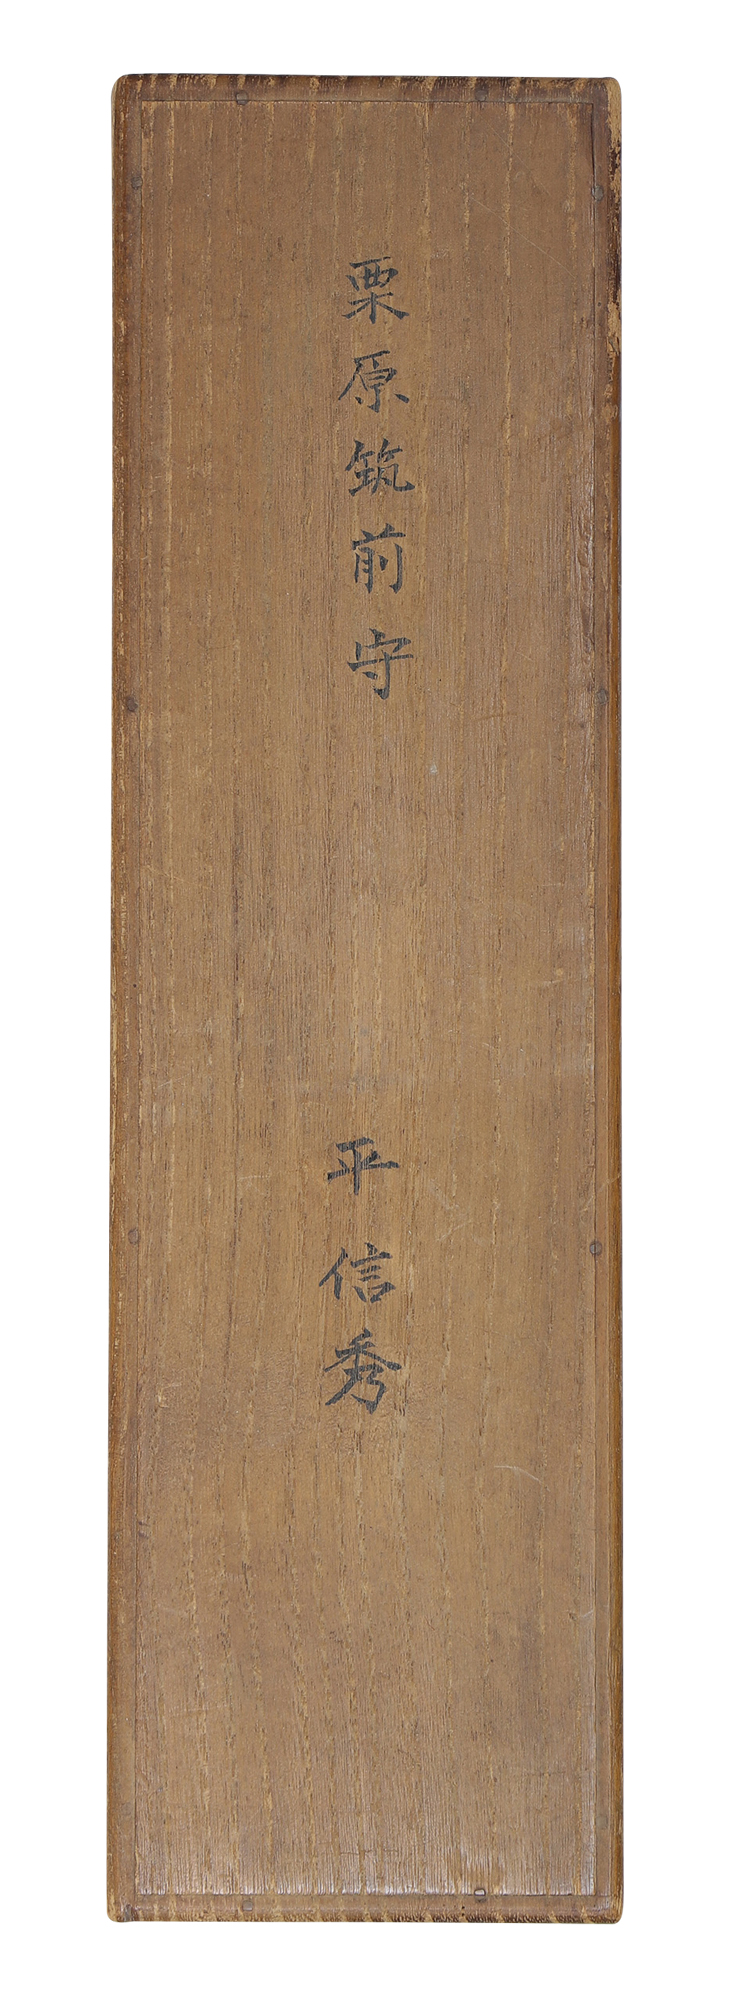 栗原筑前守
平信秀